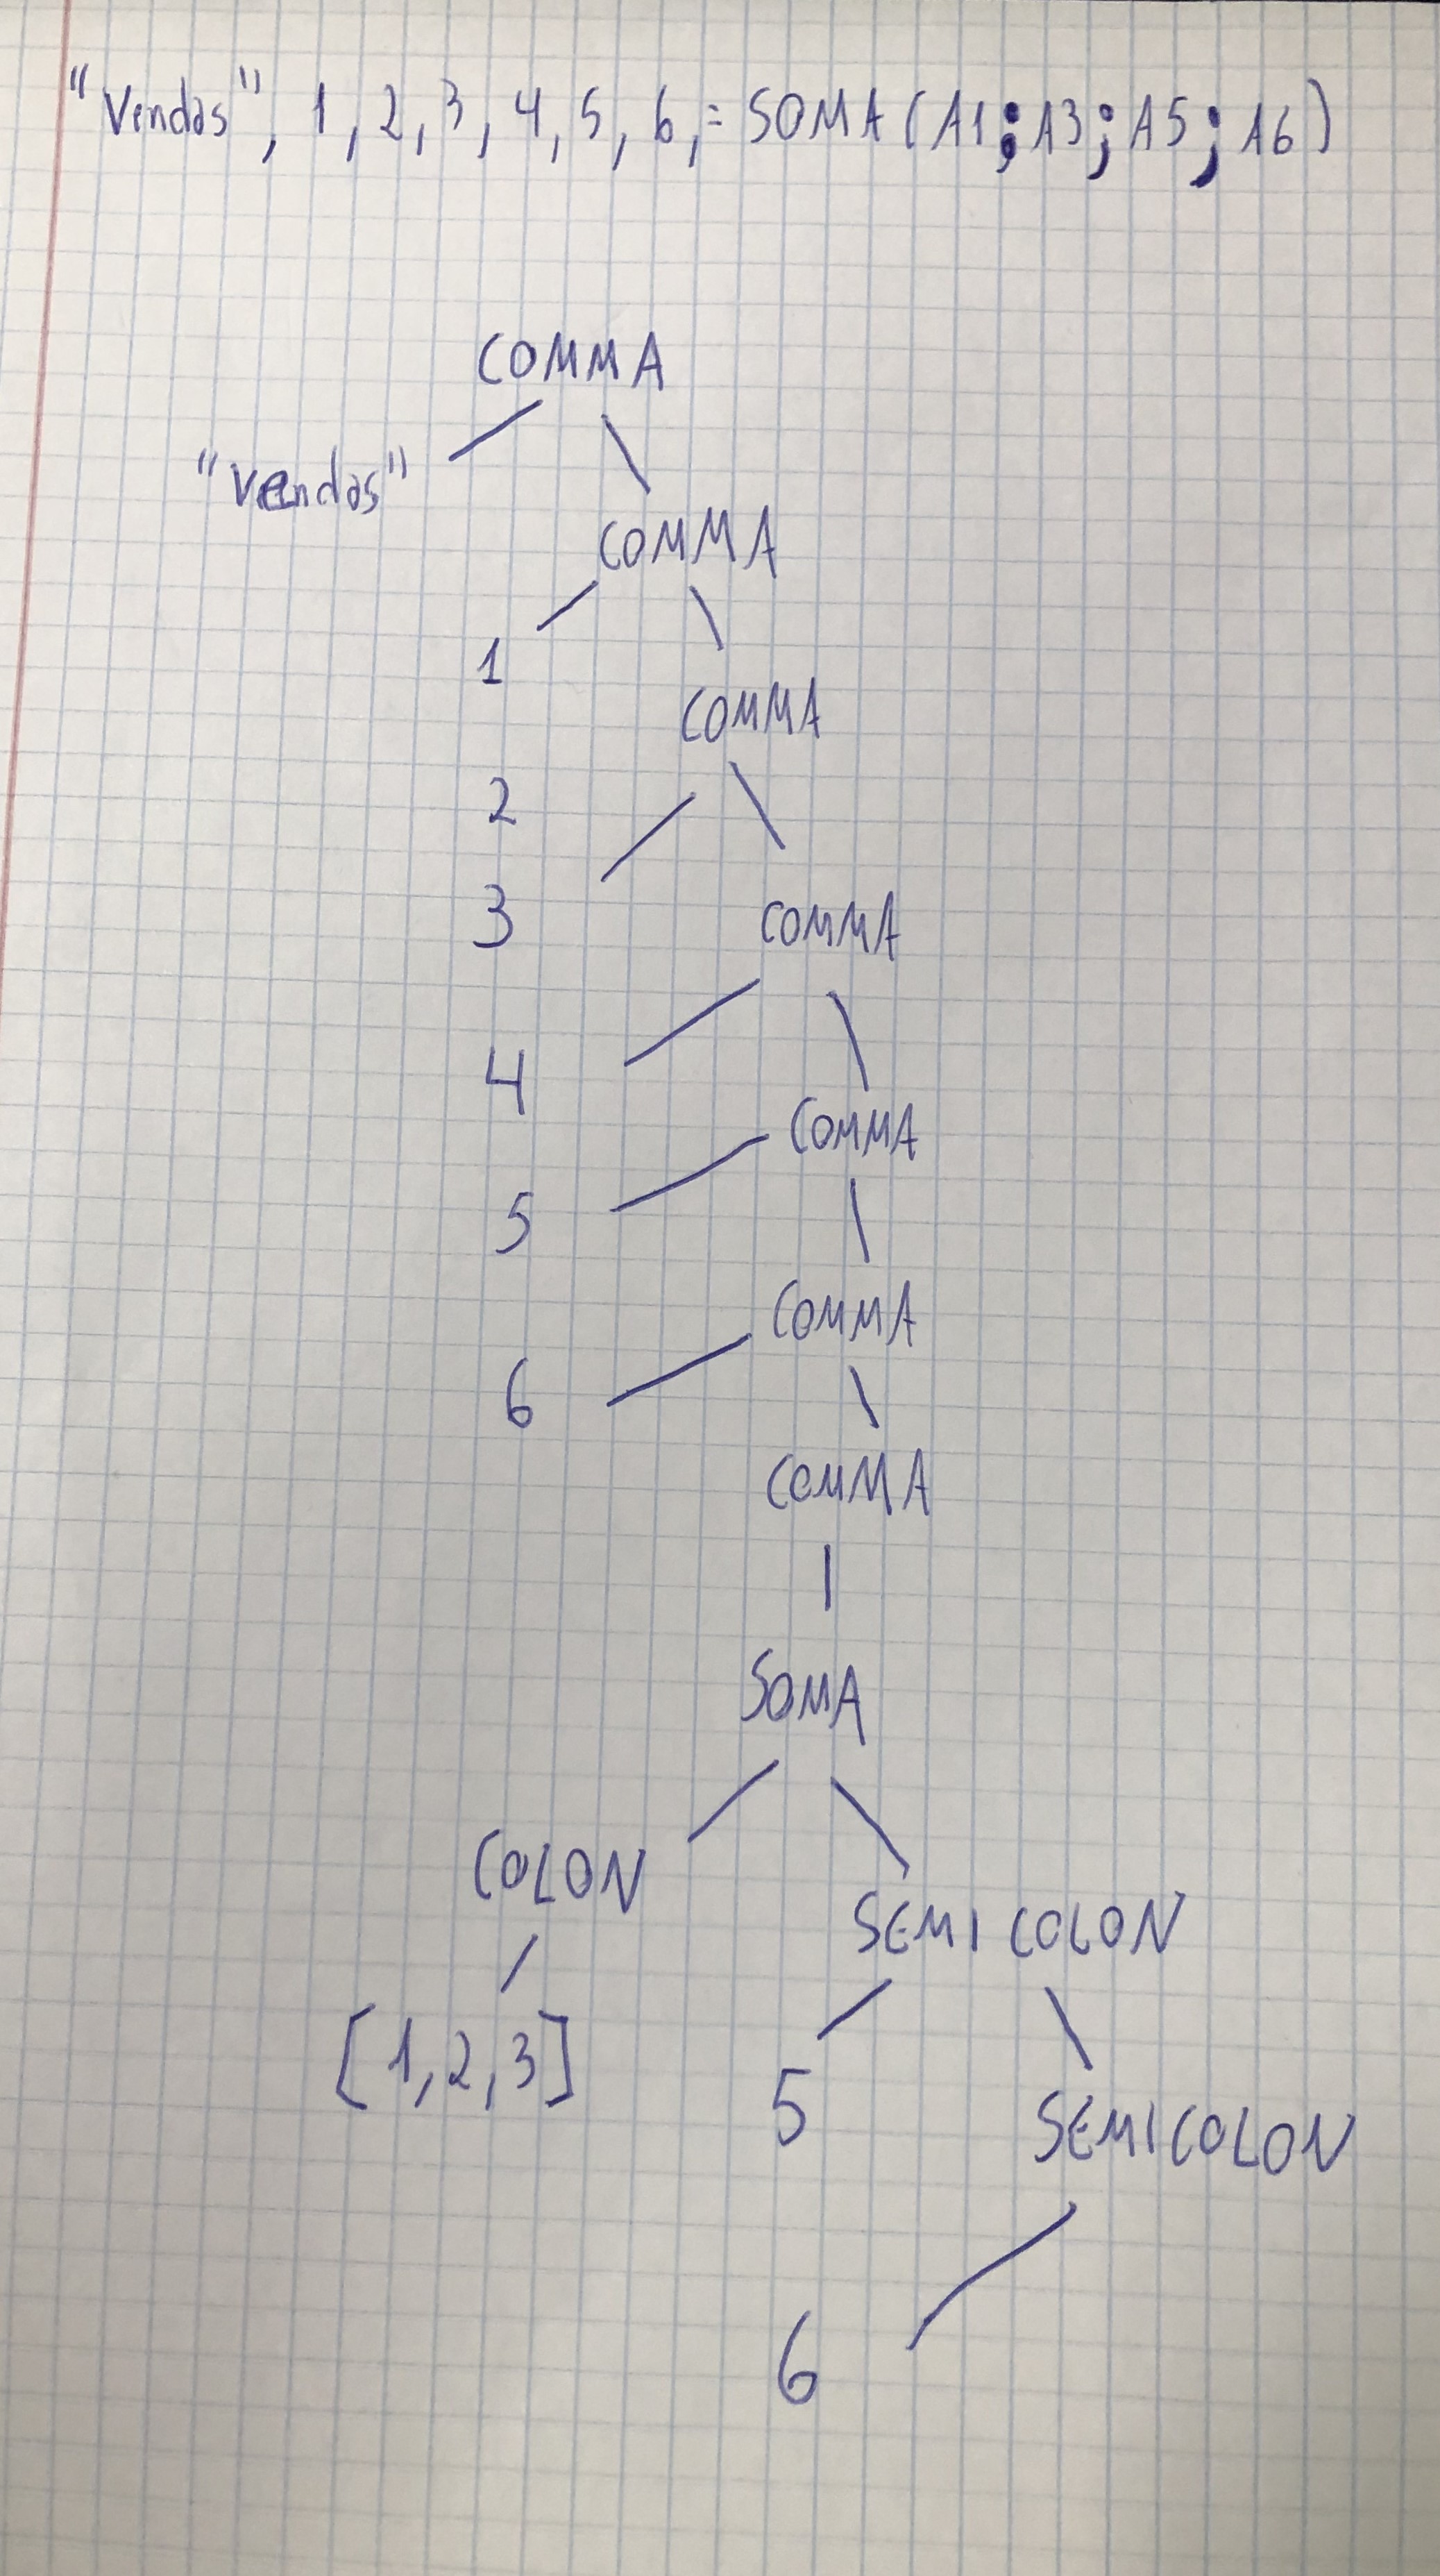 "Vendas", 1, 2, 3, 4, 5, 6, = SOMA (A1; A3; A5; A6)
COMMA
"Vendas"
COMMA
1
COMMA
2
3
COMMA
4
COMMA
5
COMMA
6
COMMA
SOMA
COLON
SEMICOLON
[1, 2, 3]
5
SEMICOLON
6